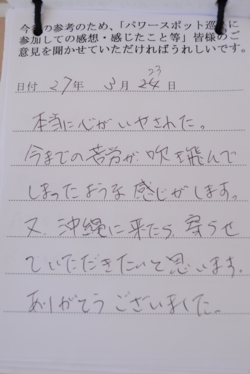 今後の参考のため、「パワースポット巡りに
参加しての感想・感じたこと等」皆様のご
意見を聞かせていただければうれしいです。
日付 27年 3月 24日
23
本当に心がいやされた。
今までの苦労が吹き飛んで
しまったような感じがします。
又、沖縄に来たら、寄らせ
ていただきたいと思います。
ありがとうございました。